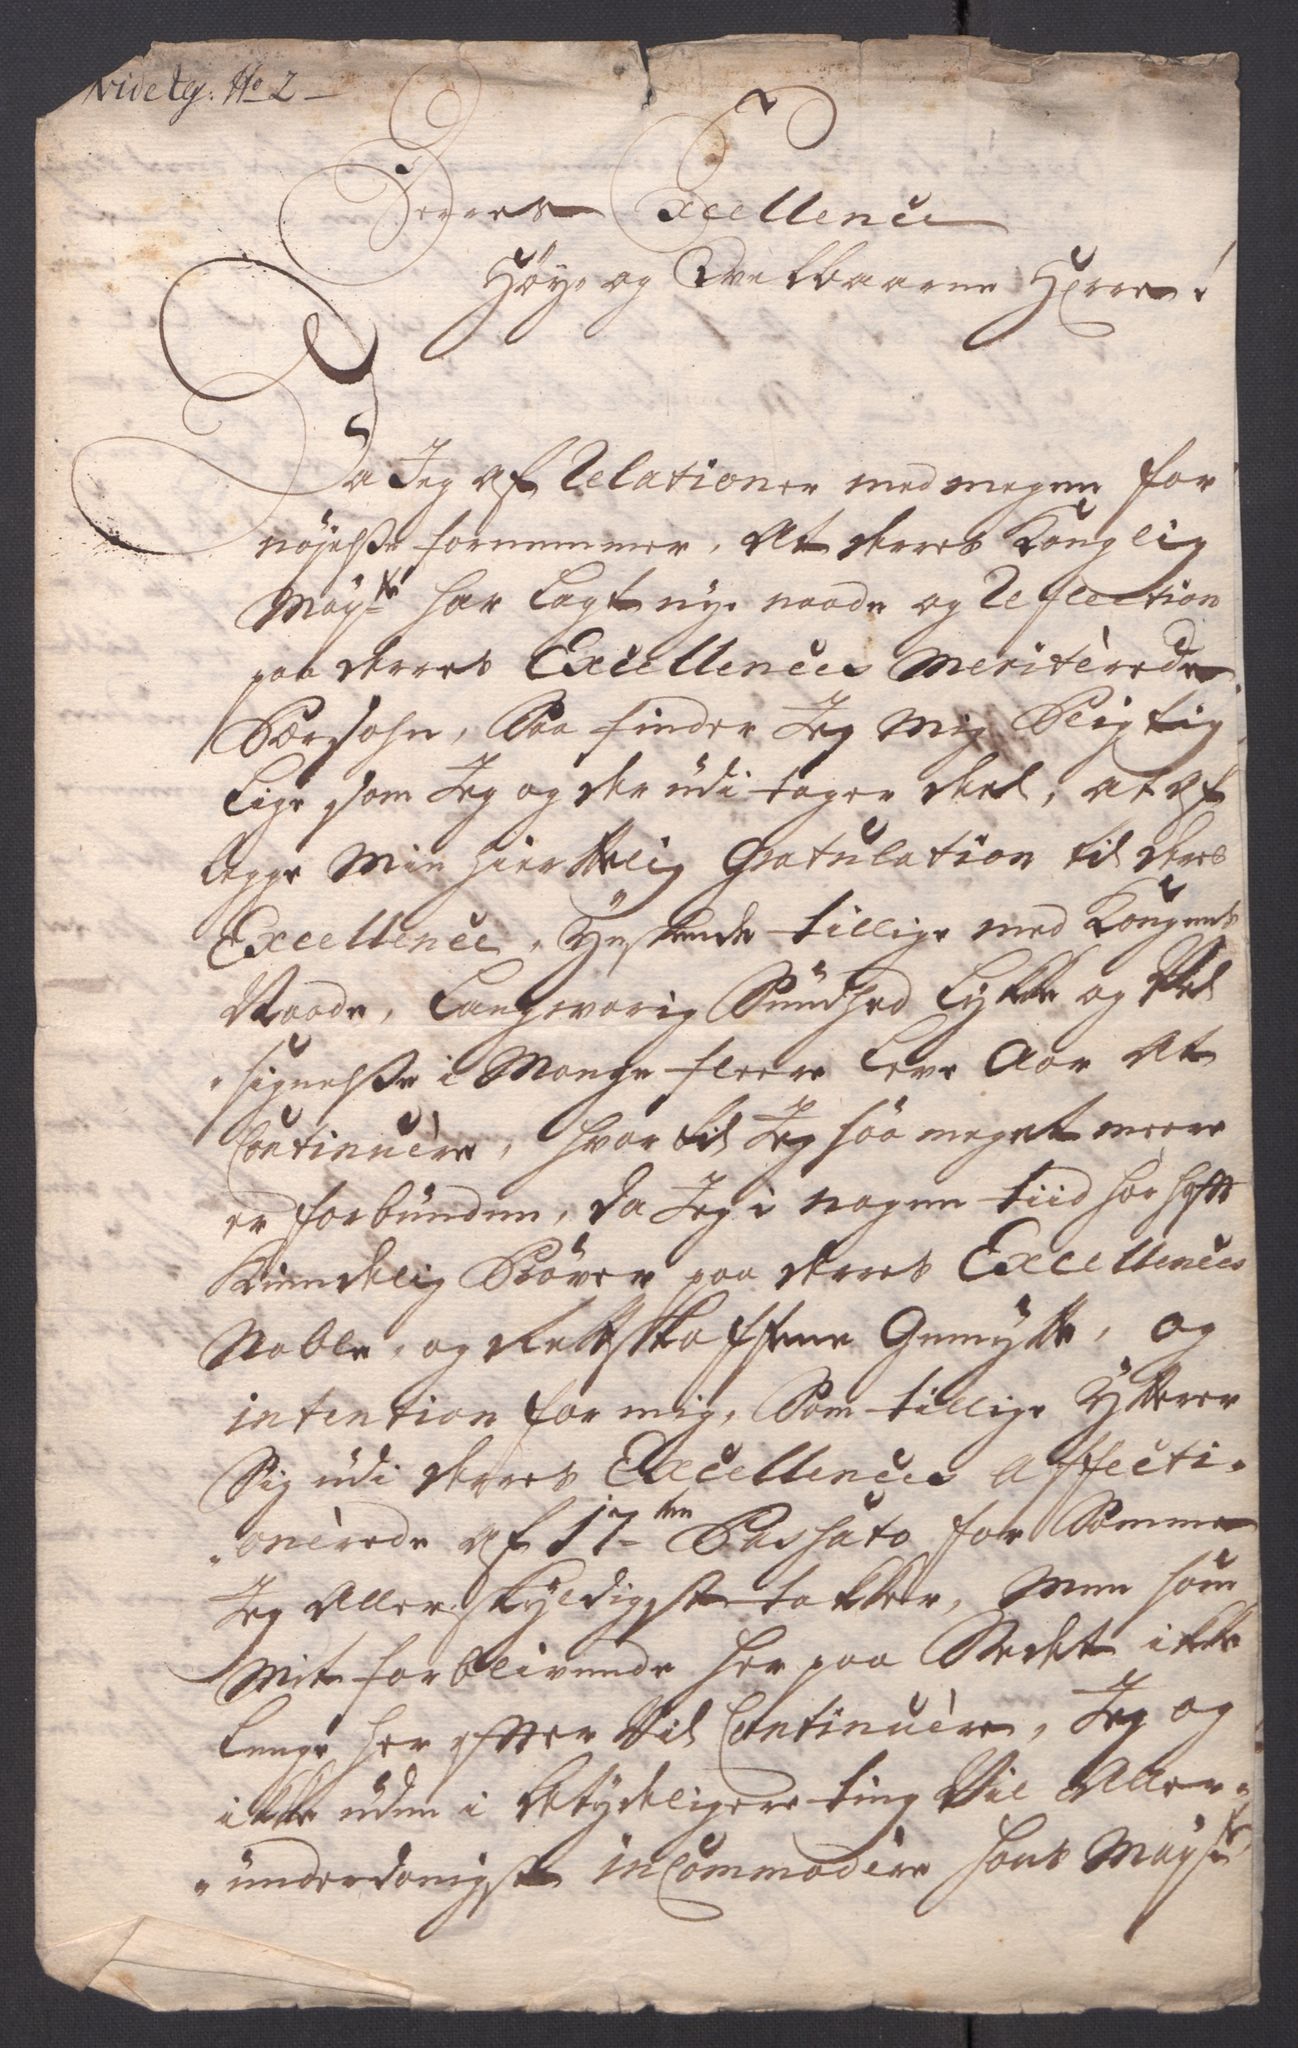 videtg. No 2
Deres Excellence
Höy- og Velbaarne Herre!
Da Jeg af Relationer med megen for
nöjelße fornemmer, At deres Konglig
Mayst har lagt nye naade og Reflection
paa deres Excellences Meriterede
Pærsohn, Saa finder Jeg Mig Pligtig
Lige som Jeg og der udi tager deel, at af
legge Min hiertelig Gratulation til deres
Excellence, Ynskende tillige med Kongens
Naade, Langvarig Sundhed Lykke og Vel
signelße i Mange fleere leve Aar At
Continuere, hvor til Jeg saa meget meere
er forbunden, da Jeg i nogen tiid har hafft
Kiendelig Pröver paa deres Excellences
Noble, og Rettskaffene Gemytte, og
intention for mig, Som tillige Ytterer
Sig udi deres Excellences affecti-
onerede af 17ten Passato for Somme
Jeg Allerskyldigst takker, Men som
Mit forblivende her paa Stedet ikke
lenge her efter Vil Continuere, Jeg og
ikke uden i betydeligere ting Vil Aller-
underdanigst inCommodere Hans Mayst